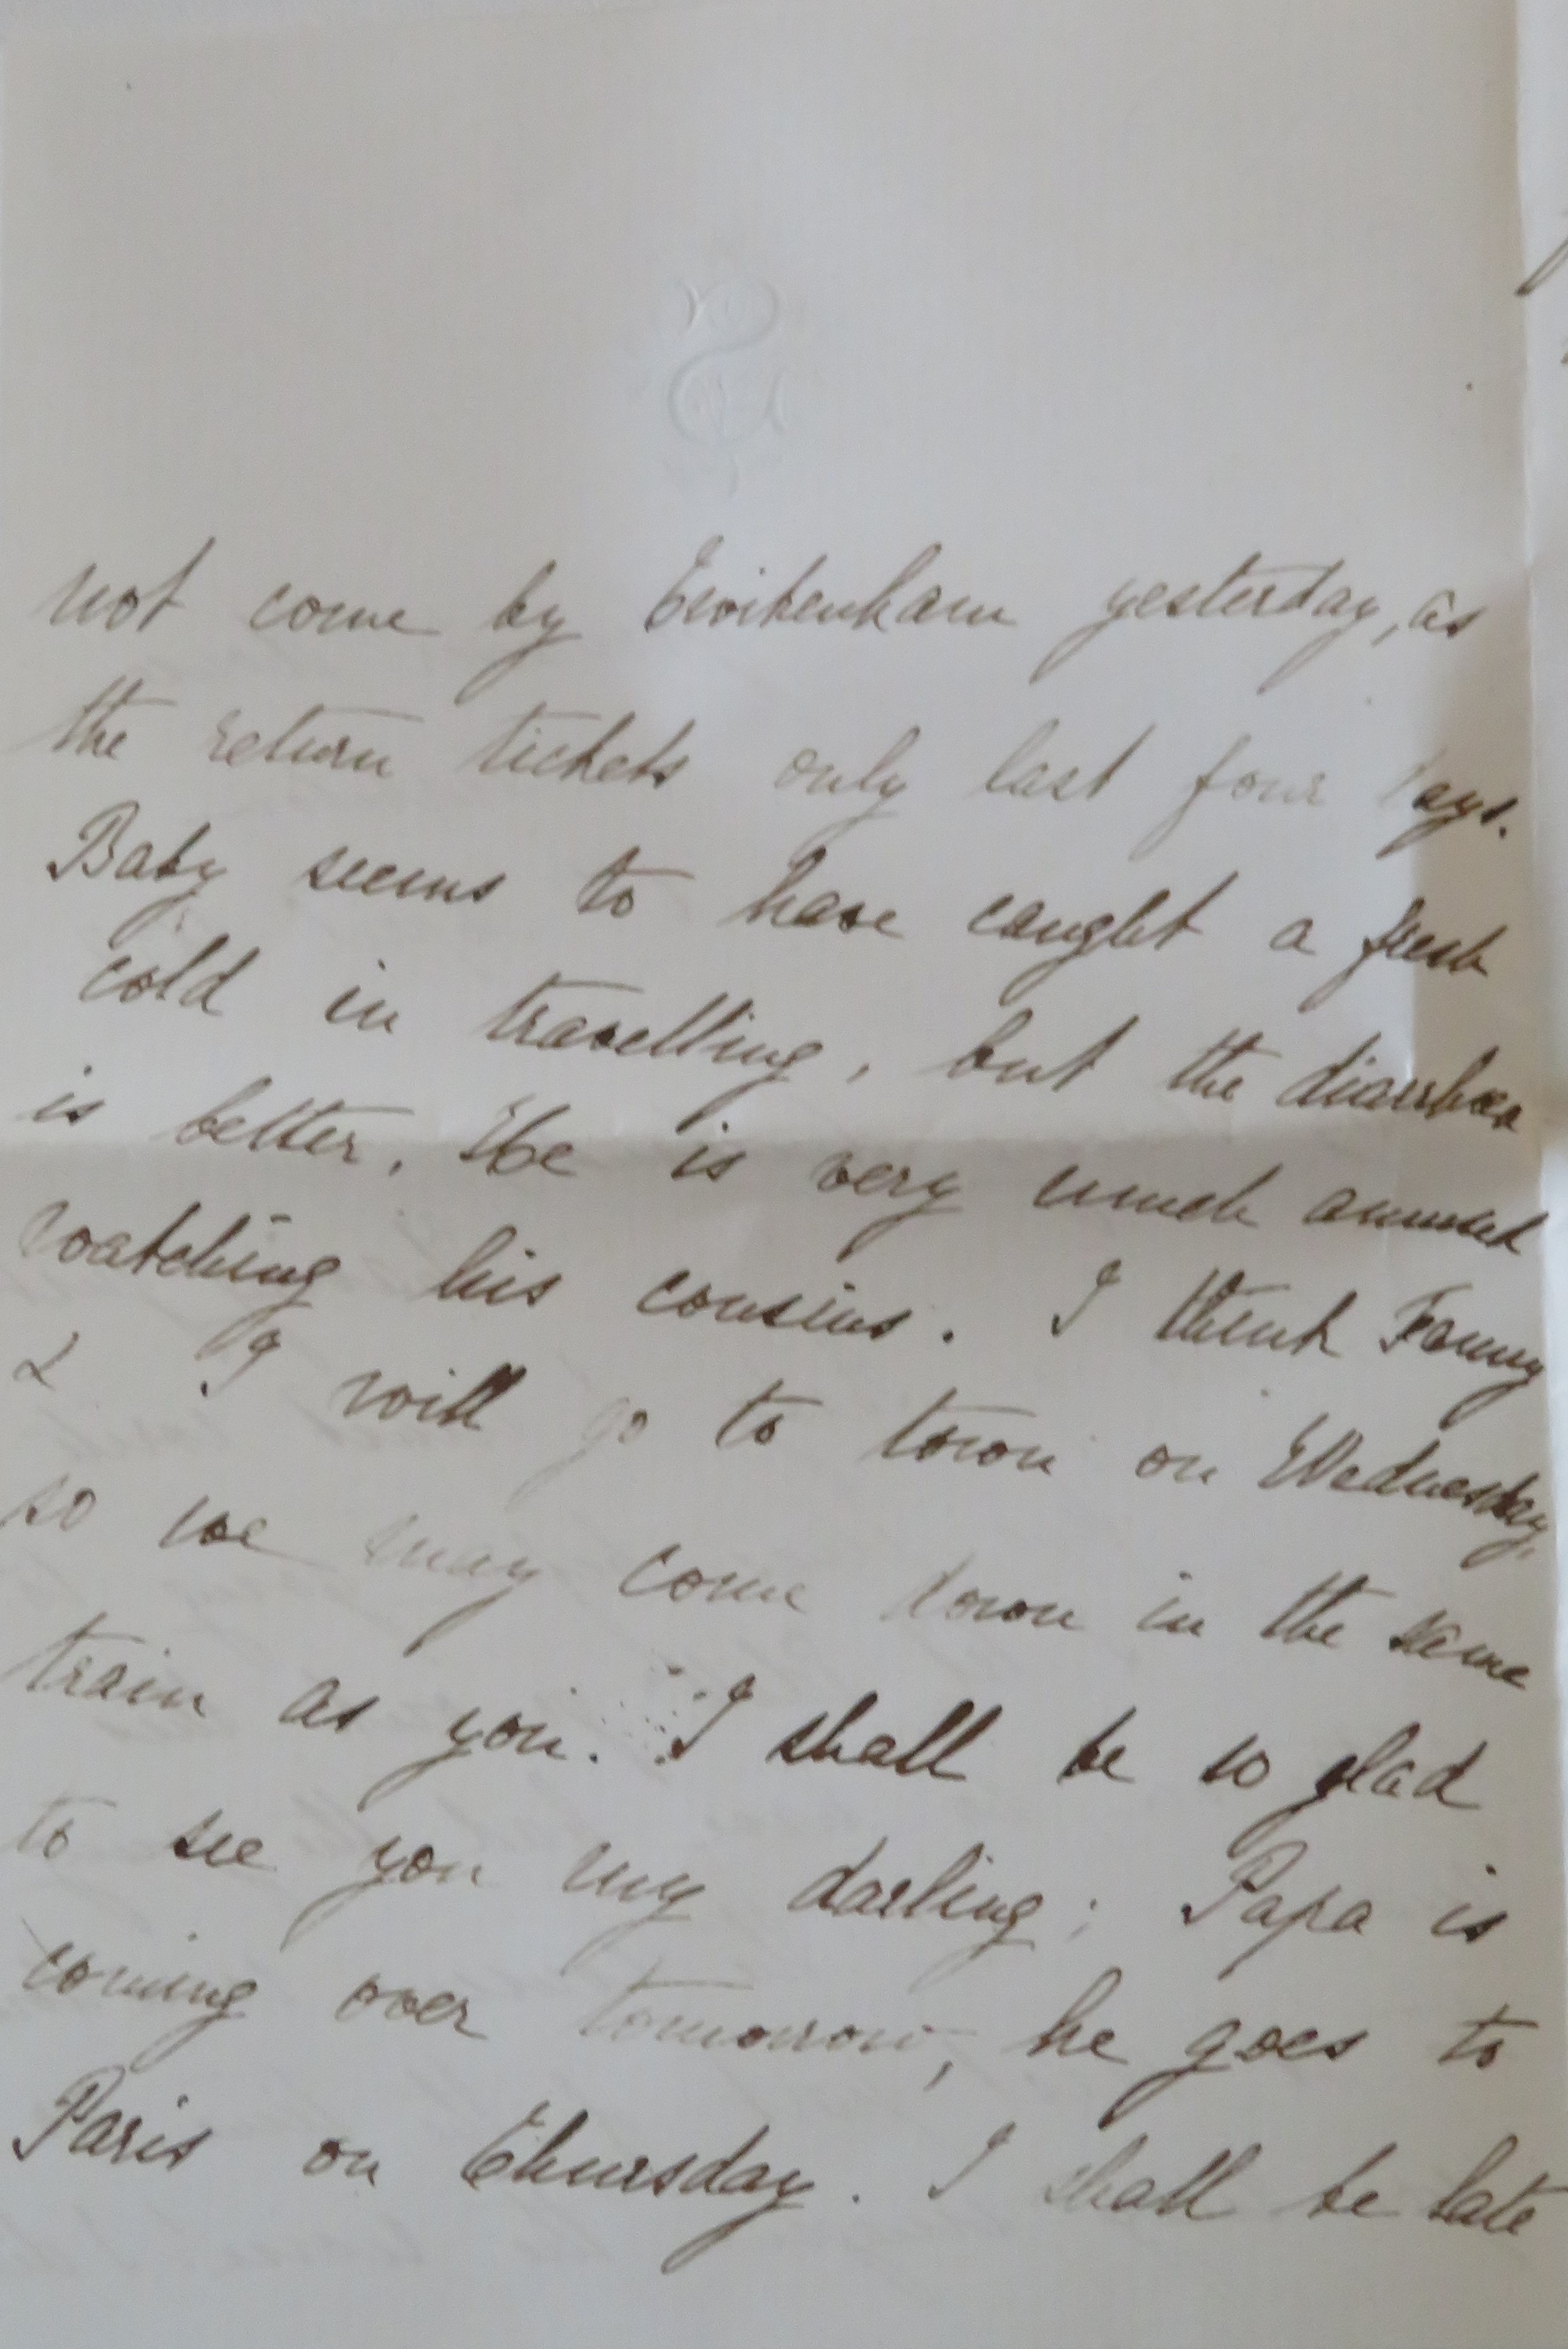 not come by Twickenham yesterday, as
the return tickets only last four days.
Baby seems to have caught a fresh
cold in travelling, but the diarrhoea
is better. He is very much amused
watching his cousins. I think Fanny
& I will go to town on Wednesday,
so we may come down in the same
train as you. I shall be so glad
to see you my darling; Papa is
coming over tomorrow, he goes to
Paris on Thursday. I shall be late